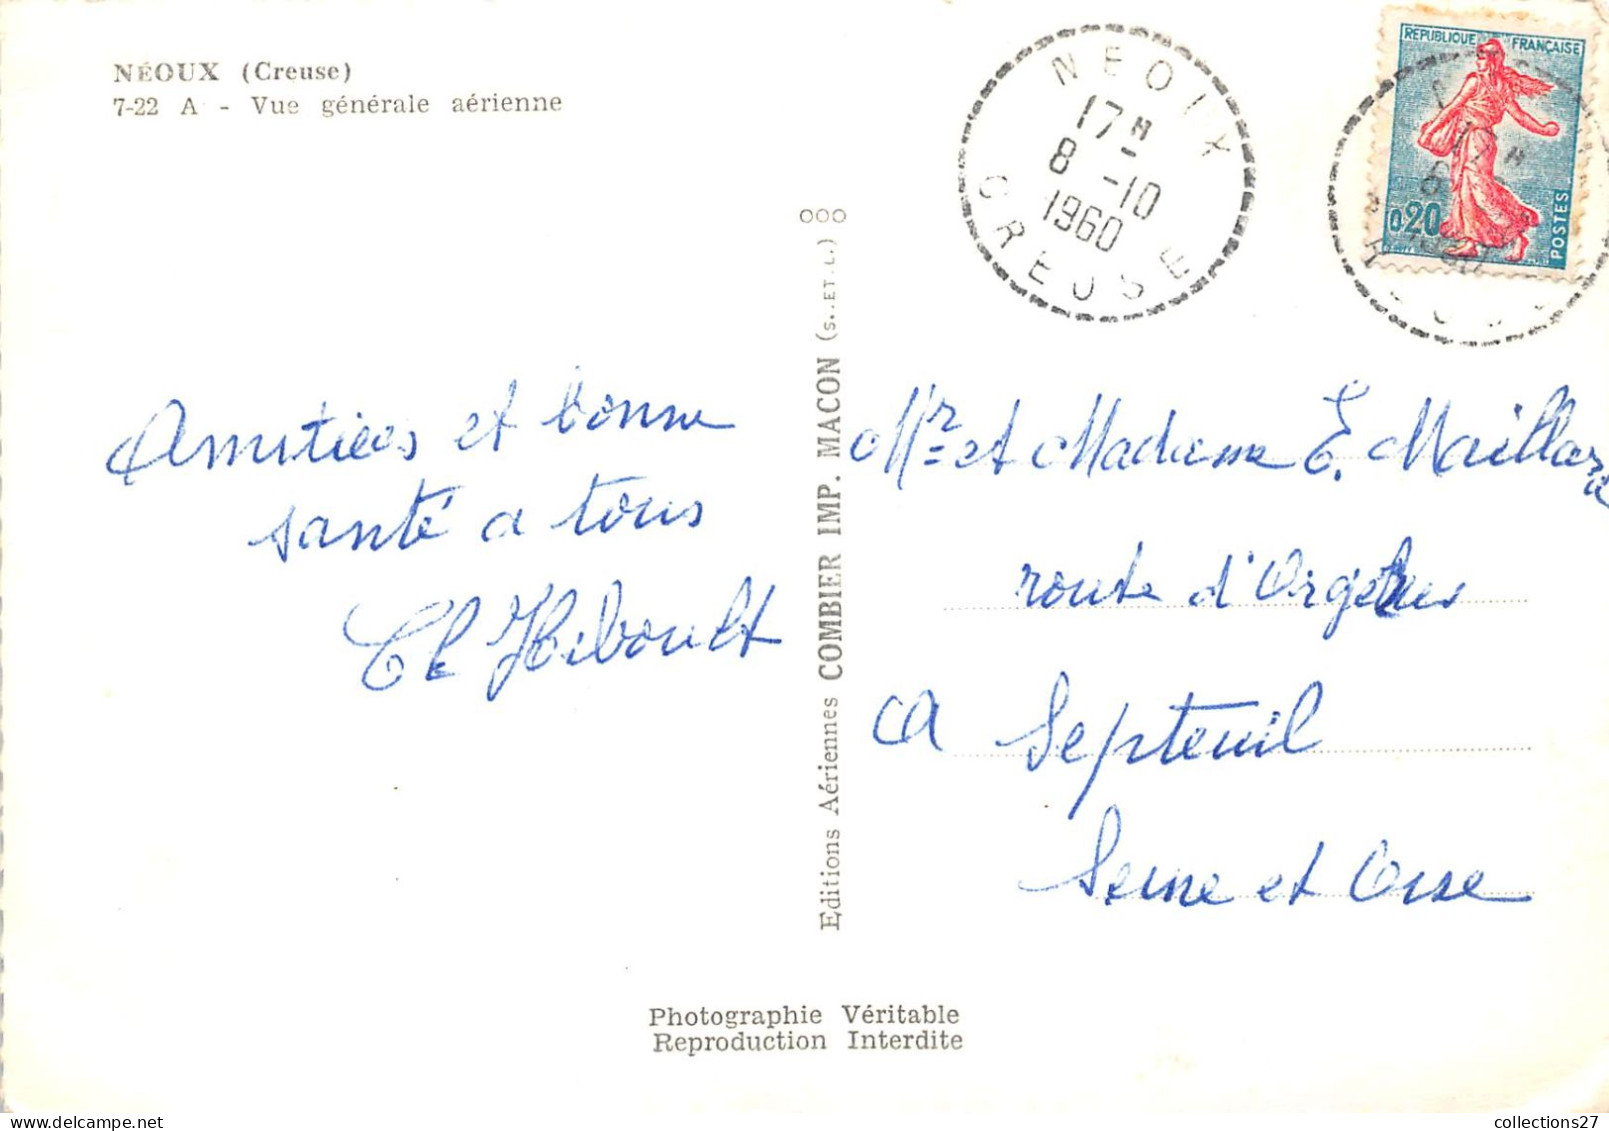 NÉOUX (Creuse)
7-22 A - Vue générale aérienne
Amitiées et bonne
santé a tous
Ch Thiboult
Editions Aériennes COMBIER IMP. MACON (S. ET L.) OOO
NEOUX
17H
8-10
1960
CREUSE
REPUBLIQUE FRANÇAISE
0,20
POSTES
17H
1960
Mr et Madame E. Maillard
route d'Orgerus
a Septeuil
Seine et Oise
Photographie Véritable
Reproduction Interdite
collections27